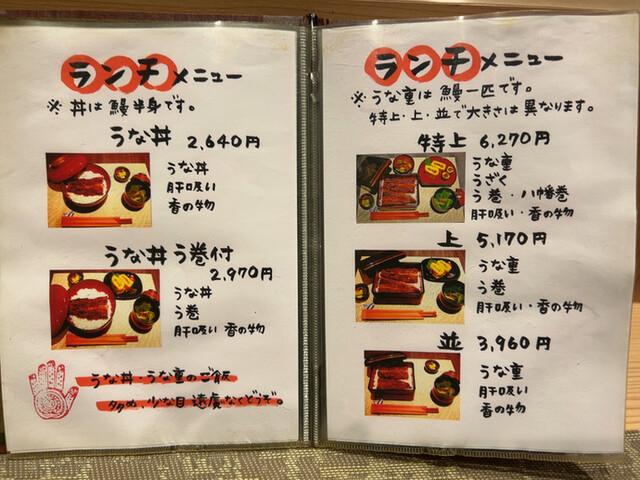 ランチメニュー
※ 丼は鰻半身です。
うな丼 2,640円
うな丼
肝吸い
香の物
うな丼 う巻付
2,970円
うな丼
う巻
肝吸い 香の物
うな丼・うな重のご飯
多め、少な目 遠慮なくどうぞ。
ランチメニュー
※ うな重は鰻一匹です。
特上・上・並で大きさは異なります。
特上 6,270円
うな重
うざく
う巻・八幡巻
肝吸い・香の物
上 5,170円
うな重
う巻
肝吸い・香の物
並 3,960円
うな重
肝吸い
香の物